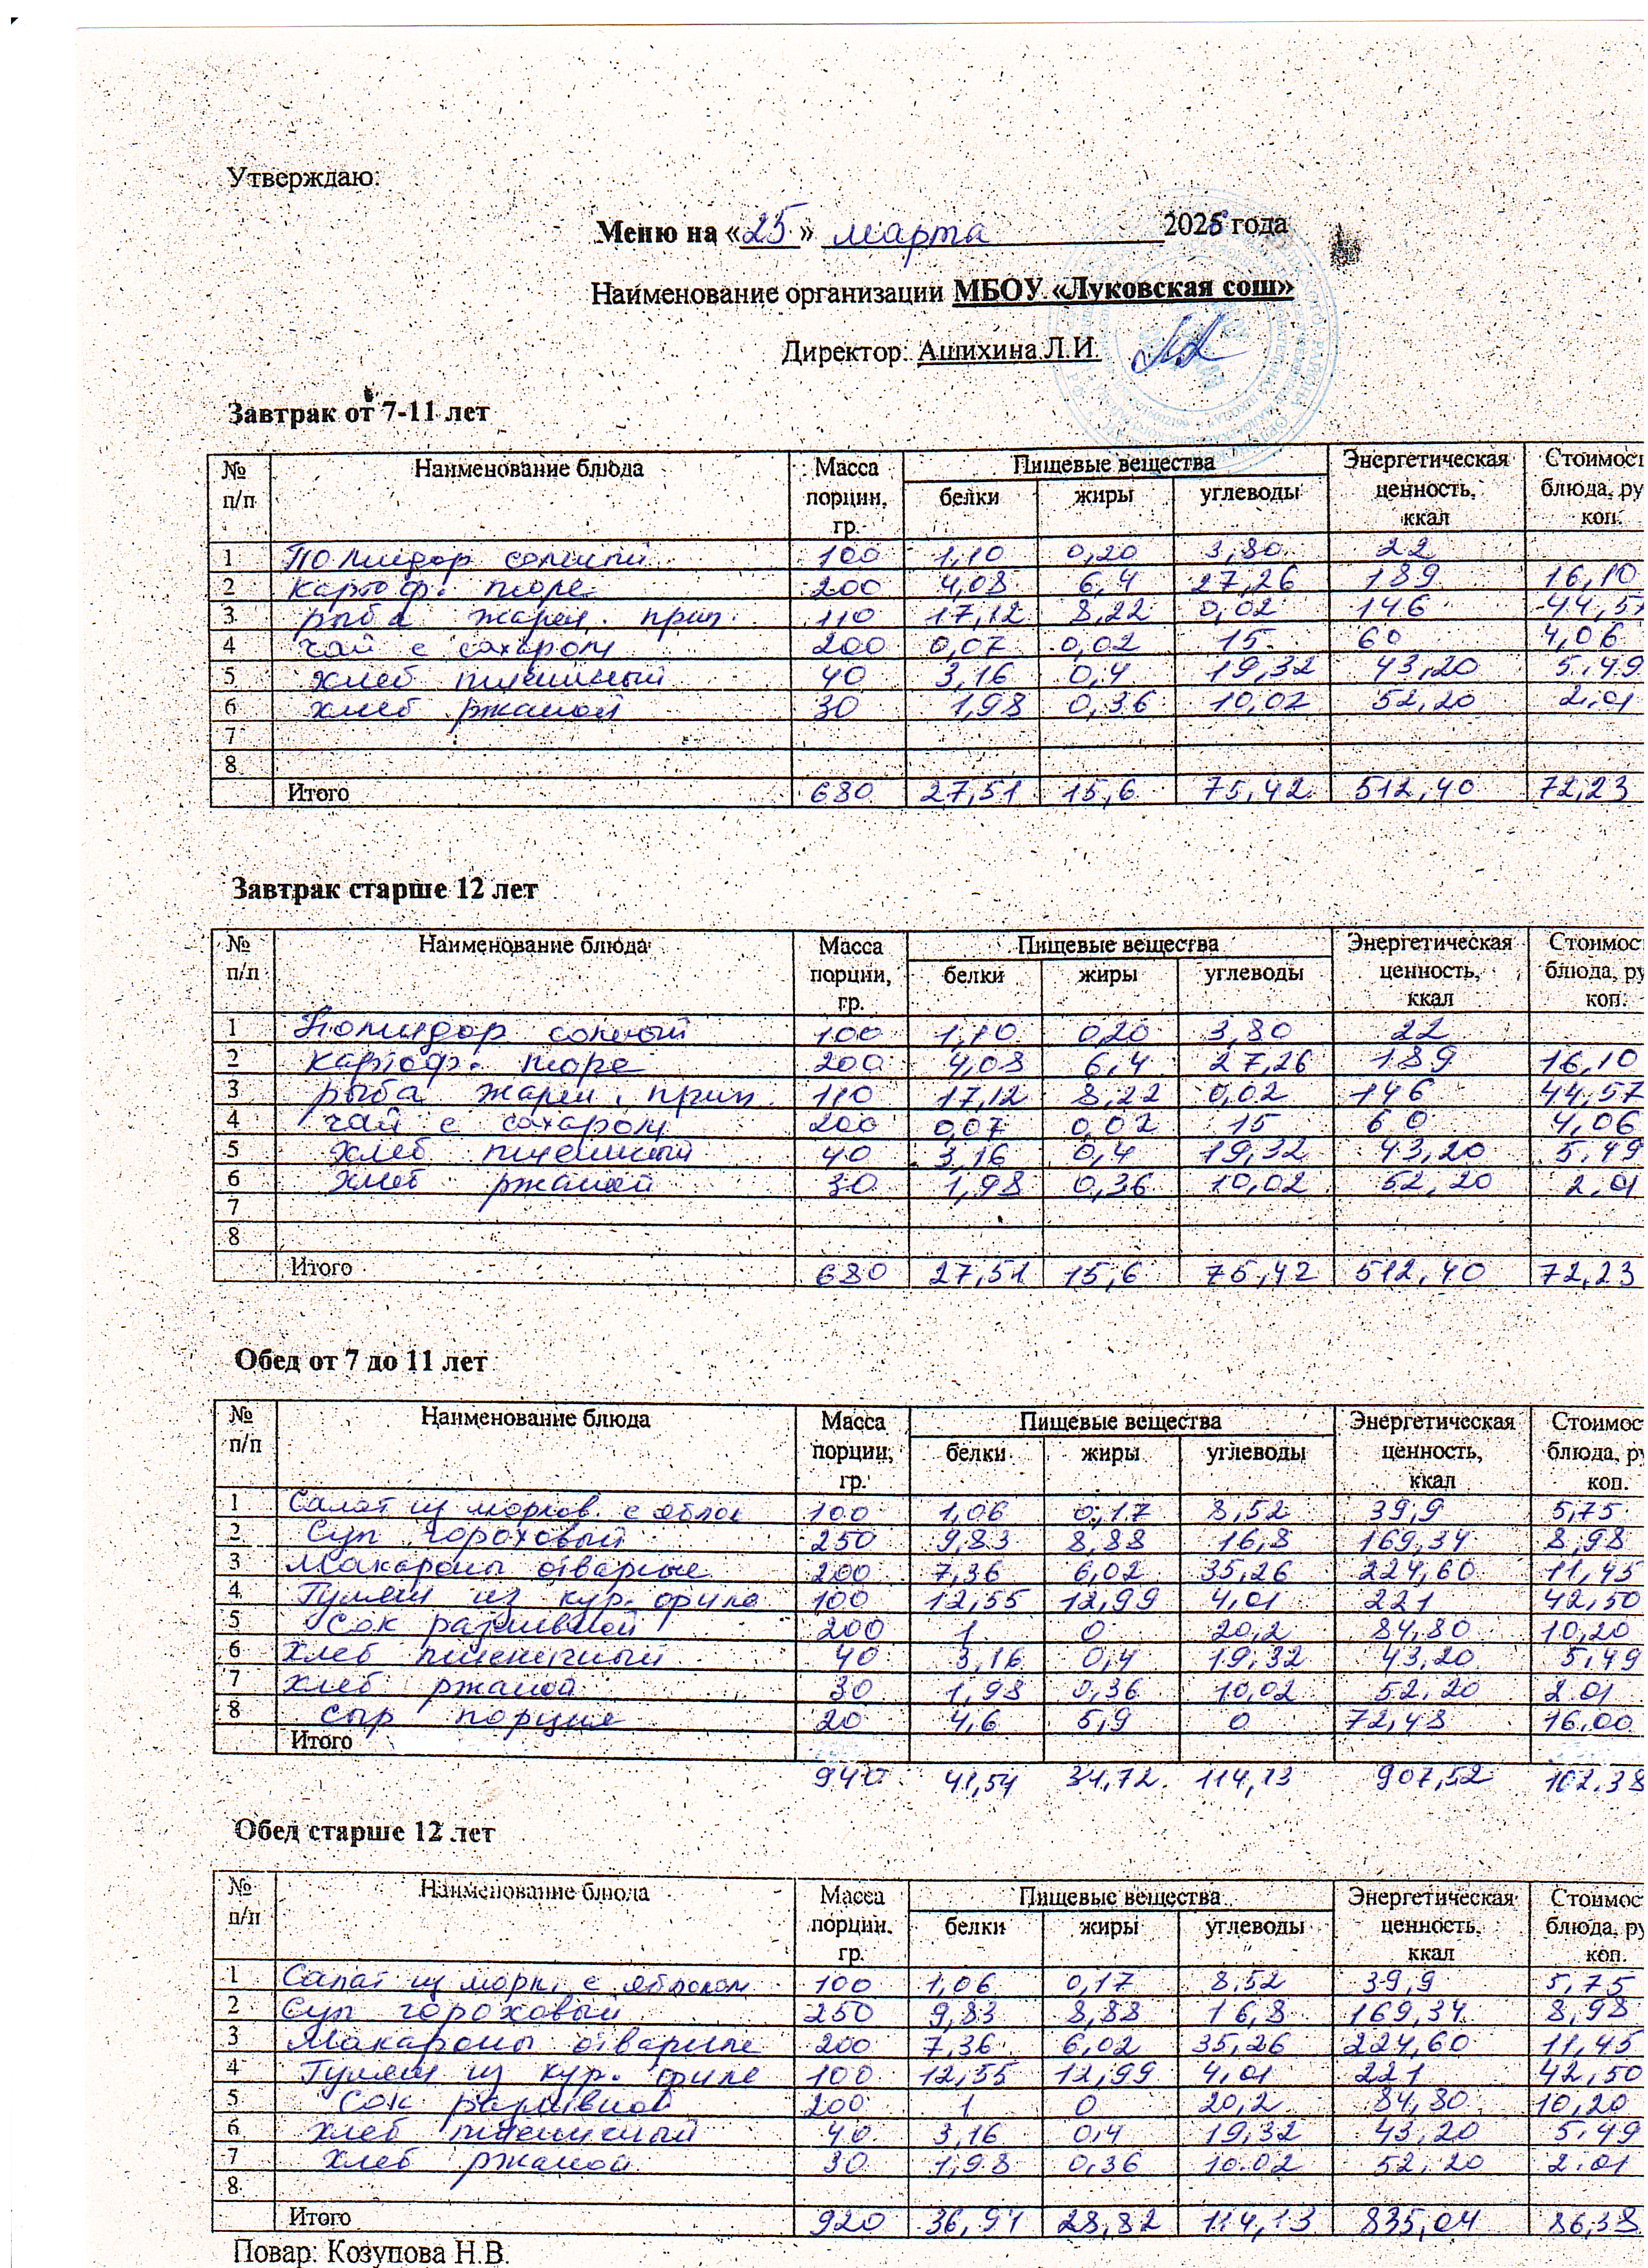 Утверждаю:
Меню на «25» марта 2025 года
Наименование организации МБОУ «Луковская сош»
Директор: Ашихина Л.И.
Завтрак от 7-11 лет
№ п/п Наименование блюда Масса порции, гр. Пищевые вещества белки жиры углеводы Энергетическая ценность, ккал Стоимос блюда, ру коп.
1 Помидор соленый 100 1,10 0,20 3,80 22
2 картоф. пюре 200 4,08 6,4 27,26 189 16,10
3 рыба жарен. прип. 110 17,12 8,22 0,02 146 44,57
4 чай с сахаром 200 0,07 0,02 15 60 4,06
5 хлеб пшенный 40 3,16 0,4 19,32 43,20 5.49
6 хлеб ржаной 30 1,98 0,36 10,02 52,20 2.01
7
8
Итого 680 27,51 15,6 75,42 512,40 72,23
Завтрак старше 12 лет
№ п/п Наименование блюда Масса порции, гр. Пищевые вещества белки жиры углеводы Энергетическая ценность, ккал Стоимос блюда, ру коп.
1 Помидор соленый 100 1,10 0,20 3,80 22
2 картоф. пюре 200 4,08 6,4 27,26 189 16,10
3 рыба жарен. прип. 110 17,12 8,22 0,02 146 44,57
4 чай с сахаром 200 0,07 0,02 15 60 4,06
5 хлеб пшенный 40 3,16 0,4 19,32 43,20 5,49
6 хлеб ржаной 30 1,98 0,36 10,02 52,20 2,01
7
8
Итого 680 27,51 15,6 75,42 512,40 72,23
Обед от 7 до 11 лет
№ п/п Наименование блюда Масса порции, гр. Пищевые вещества белки жиры углеводы Энергетическая ценность, ккал Стоимос блюда, ру коп.
1 Салат из морков. с яблок 100 1,06 0,17 8,52 39,9 5,75
2 Суп гороховый 250 9,83 8,88 16,8 169,34 8,98
3 Макароны отварные 200 7,36 6,02 35,26 224,60 11,45
4 Гуляш из кур. филе 100 12,55 12,99 4,01 221 42,50
5 Сок разливной 200 1 0 20,2 84,80 10,20
6 хлеб пшеничный 40 3,16 0,4 19,32 43,20 5,49
7 хлеб ржаной 30 1,98 0,36 10,02 52,20 2.01
8 сыр порция 20 4,6 5,9 0 72,48 16,00
Итого
940 41,54 34,72 114,13 907,52 102.38
Обед старше 12 лет
№ п/п Наименование блюда Масса порции, гр. Пищевые вещества белки жиры углеводы Энергетическая ценность, ккал Стоимос блюда, ру коп.
1 Салат из морк. с яблоком 100 1,06 0,17 8,52 39,9 5,75
2 Суп гороховый 250 9,83 8,88 16,8 169,34 8,98
3 Макароны отварные 200 7,36 6,02 35,26 224,60 11,45
4 Гуляш из кур. филе 100 12,55 12,99 4,01 221 42,50
5 Сок разливной 200 1 0 20,2 84,80 10,20
6 хлеб пшеничный 40 3,16 0,4 19,32 43,20 5,49
7 хлеб ржаной 30 1,98 0,36 10.02 52,20 2.01
8
Итого 920 36,94 28,82 114,13 835,04 86,38
Повар: Козупова Н.В.